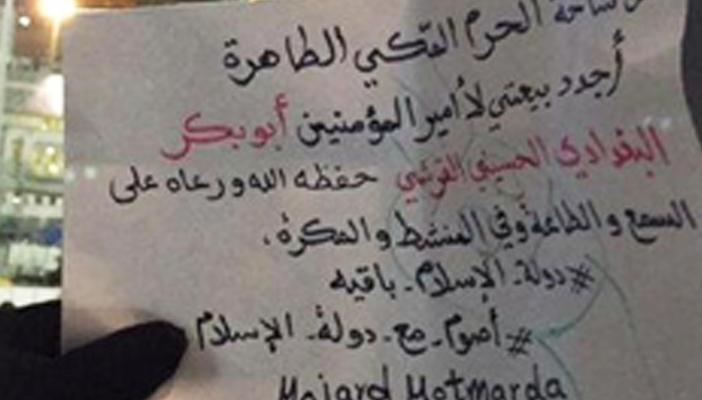 ساحة الحرم المكي الطاهرة
أجدد بيعتي لأ أمير المؤمنين أبو بكر
البغدادي الحسيني القرشي حفظه الله ورعاه على
السمع والطاعة وفي المنشط والمكرة ،
#دولة_الإسلام_باقيه
#أصوم_مع_دولة_الإسلام
Mojard Motmarda